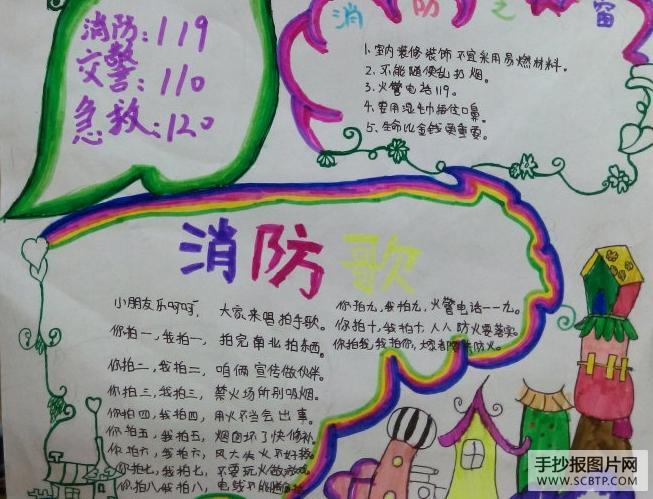 消防：119
交警：110
急救：120
消防之窗
1.室内装修装饰不宜采用易燃材料。
2.不能随便乱扔烟。
3.火警电话119。
4.要用湿毛巾捂住口鼻。
5.生命比金钱更重要。
消防歌
小朋友乐呵呵， 大家来唱拍手歌。
你拍一，我拍一，
你拍二，我拍二， 咱俩宣传做伙伴。
你拍三，我拍三， 禁火场所别吸烟。
你拍四，我拍四， 用火不当会出事。
你拍五，我拍五， 烟囱坏了快修补。
你拍六，我拍六， 风大失火不好救。
你拍七，我拍七， 不要玩火做游戏。
你拍八，我拍八， 电线不能
你拍九，我拍九，火警电话一一九。
你拍十，我拍十，人人防火要落实。
你拍我，我拍你，
手抄报图片网
WWW.SCBTP.COM